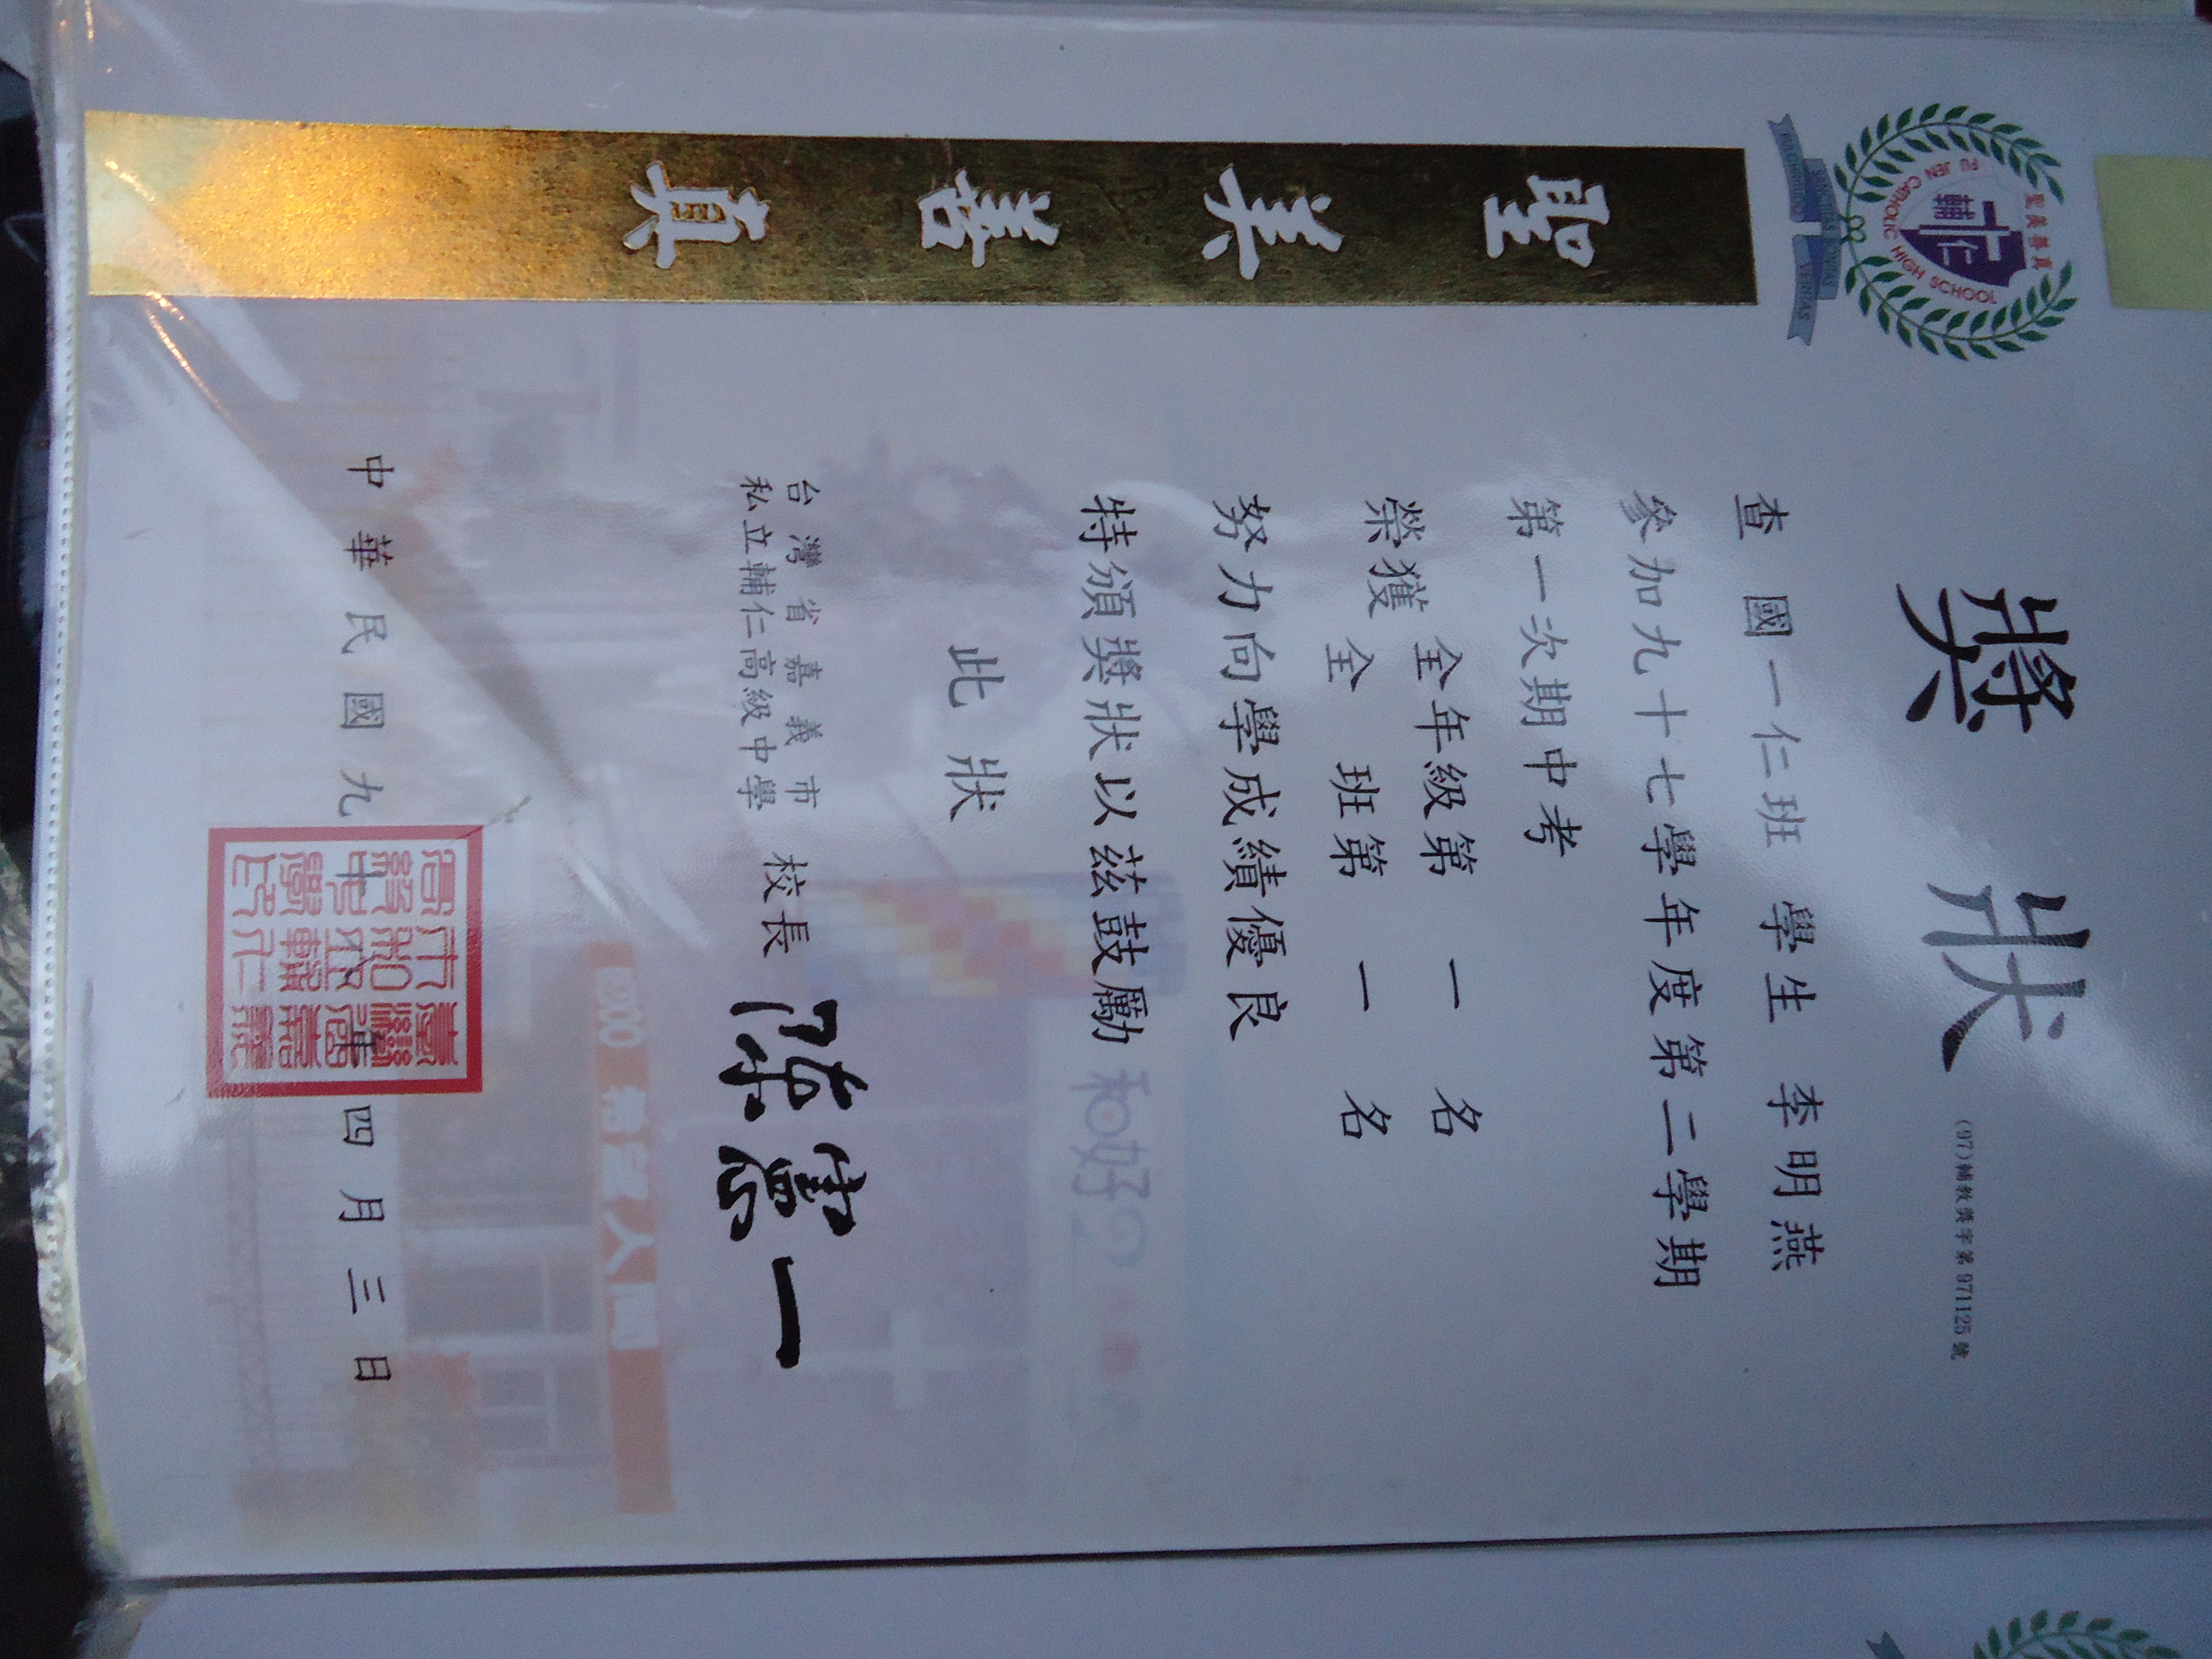 聖美善真
FU JEN CATHOLIC HIGH SCHOOL
輔仁
PULCHRITUDO SANCTITAS BONITAS VERITAS
聖美善真
獎狀
(97)輔教獎字第971125號
查 國一仁班 學生 李明燕
參加九十七學年度第二學期
第一次期中考
榮獲 全年級第 一 名
全 班第 一 名
努力向學成績優良
特頒獎狀以茲鼓勵
此狀
台灣省嘉義市
私立輔仁高級中學
校長
陳憲一
中華民國九十八年四月三日
和好